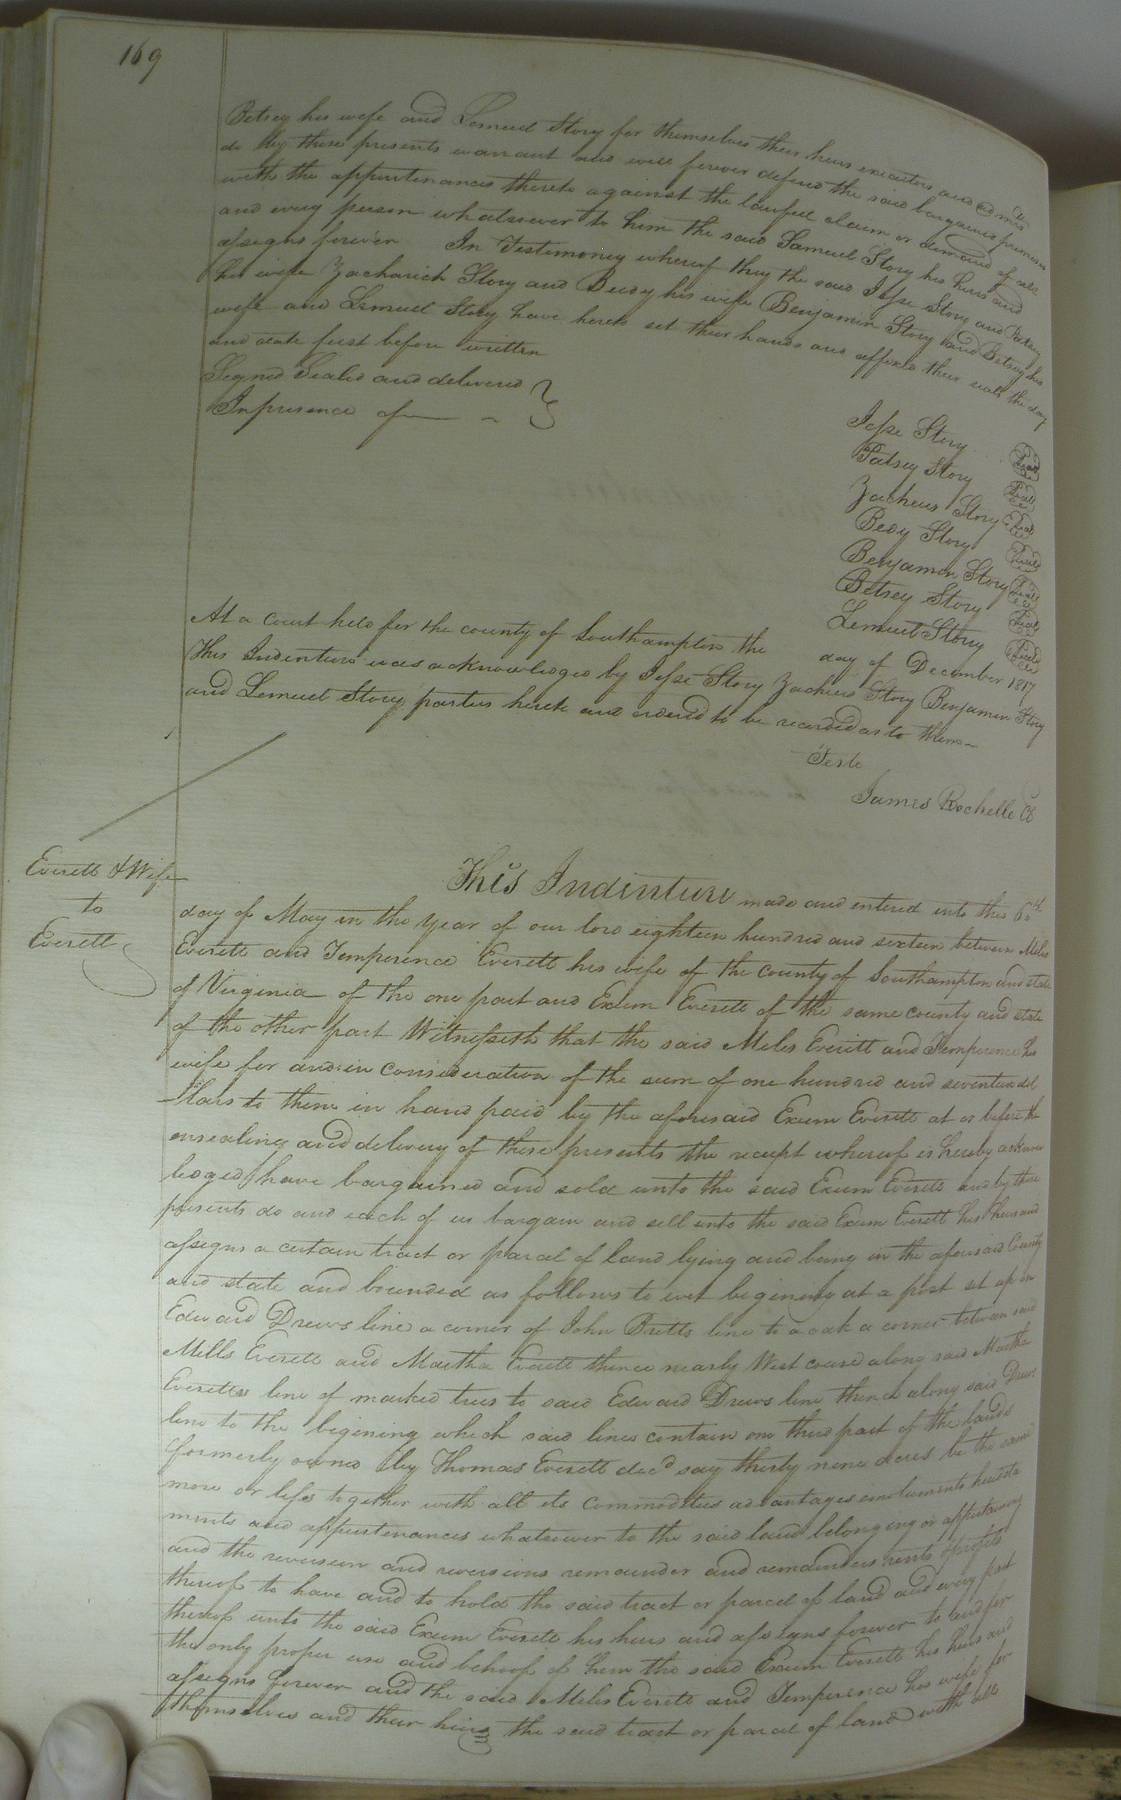 169
Betsey his wife and Lemuel Story for themselves their heirs executors and admrs
do by these presents warrant and will forever defend the said bargained premises
with the appurtenances thereto against the lawful claim or demand of all
and every person whatsoever to him the said Samuel Story his heirs and
assigns forever In Testimoney whereof they the said Jesse Story and Patsey
his wife Zachariah Story and Beedy his wife Benjamin Story and Betsey his
wife and Lemuel Story have hereto set their hands and affixed their seals the day
and date first before written
Signed Sealed and delivered
In presence of
Jesse Story Seal
Patsey Story Seal
Zacheus Story Seal
Beedy Story Seal
Benjamin Story Seal
Betsey Story Seal
Lemuel Story Seal
At a Court held for the county of Southampton the day of December 1817
This Indenture was acknowledged by Jesse Story Zacheus Story Benjamin Story
and Lemuel Story parties hereto and ordered to be recorded as to them
Teste
James Rochelle Cl
Everett & Wife
to
Everett
This Indenture made and entered into this 6th
day of May in the year of our lord eighteen hundred and sixteen between Miles
Everett and Temperence Everett his wife of the county of Southampton and state
of Virginia of the one part and Exum Everett of the same county and state
of the other part Witnesseth that the said Miles Everitt and Temperence his
wife for and in consideration of the sum of one hundred and seventeen dol
llars to them in hand paid by the aforesaid Exum Everett at or before the
ensealing and delivery of these presents the receipt whereof is hereby acknow
ledged have bargained and sold unto the said Exum Everett and by these
presents do and each of us bargain and sell unto the said Exum Everett his heirs and
assigns a certain tract or parcel of land lying and being in the aforesaid County
and state and bounded as follows to wit begining at a post set up in
Edward Drews line a corner of John Bretts line to a oak a corner between said
Mills Everett and Martha Everett thence nearly West course along said Martha
Everetts line of marked trees to said Edward Drews line thence along said Drews
line to the begining which said lines contain one third part of the lands
formerly owned by Thomas Everett decd say thirty nine acres be the same
more or less together with all its commodities advantages emoluments heredita
ments and appurtenances whatsoever to the said land belonging or appertaining
and the reversion and reversions remainder and remainders rents & profits
thereof to have and to hold the said tract or parcel of land and every part
thereof unto the said Exum Everett his heirs and assigns forever to and for
the only proper use and behoof of him the said Exum Everett his heirs and
assigns forever and the said Miles Everett and Temperence his wife for
themselves and their heirs the said tract or parcel of land with all